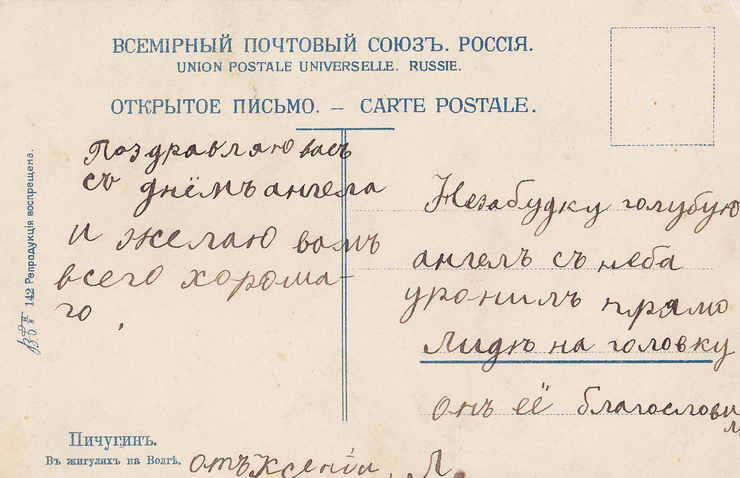 ВСЕМІРНЫЙ ПОЧТОВЫЙ СОЮЗЪ. РОССІЯ.
UNION POSTALE UNIVERSELLE. RUSSIE.
ОТКРЫТОЕ ПИСЬМО. — CARTE POSTALE.
Поздравляю васъ
съ днёмъ ангела
и желаю вамъ
всего хороша-
го.
Незабудку голубую
ангелъ съ неба
уронилъ прямо
Лидѣ на головку
онъ её благослови
лъ
142 Репродукція воспрещена.
Пичугинъ.
Въ жигуляхъ на Волгѣ.
Отъ Ксеніи. Л.